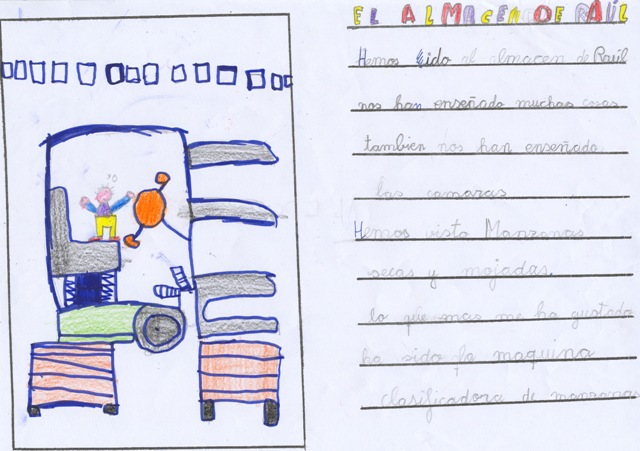 EL ALMACEN DE RAÚL
Hemos sido al almacen de Raúl
nos han enseñado muchas cosas
tambien nos han enseñado
las camaras
Hemos visto Manzanas
secas y mojadas.
lo que mas me ha gustado
ha sido la maquina
clasificadora de manzanas
yo